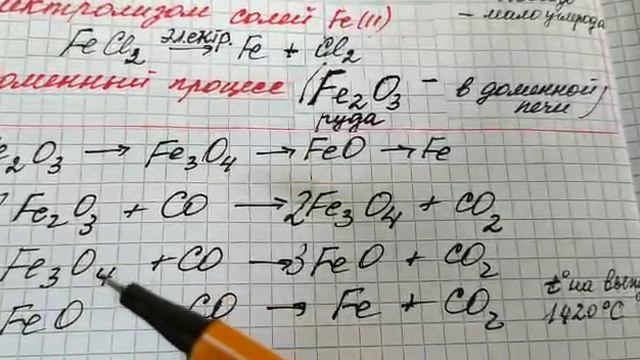 лектролизом солей Fe(II)
— мало углерода
FeCl2 электр. → Fe + Cl2
оменный процесс (Fe2O3 — в доменной печи)
руда
e2O3 → Fe3O4 → FeO → Fe
Fe2O3 + CO → 2Fe3O4 + CO2
Fe3O4 + CO → 3FeO + CO2
FeO CO → Fe + CO2
t° на вып
1420°C